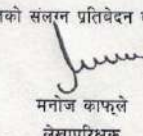 को संलग्न प्रतिबेदन
मनोज काफ्ले
लेखापरिक्षक